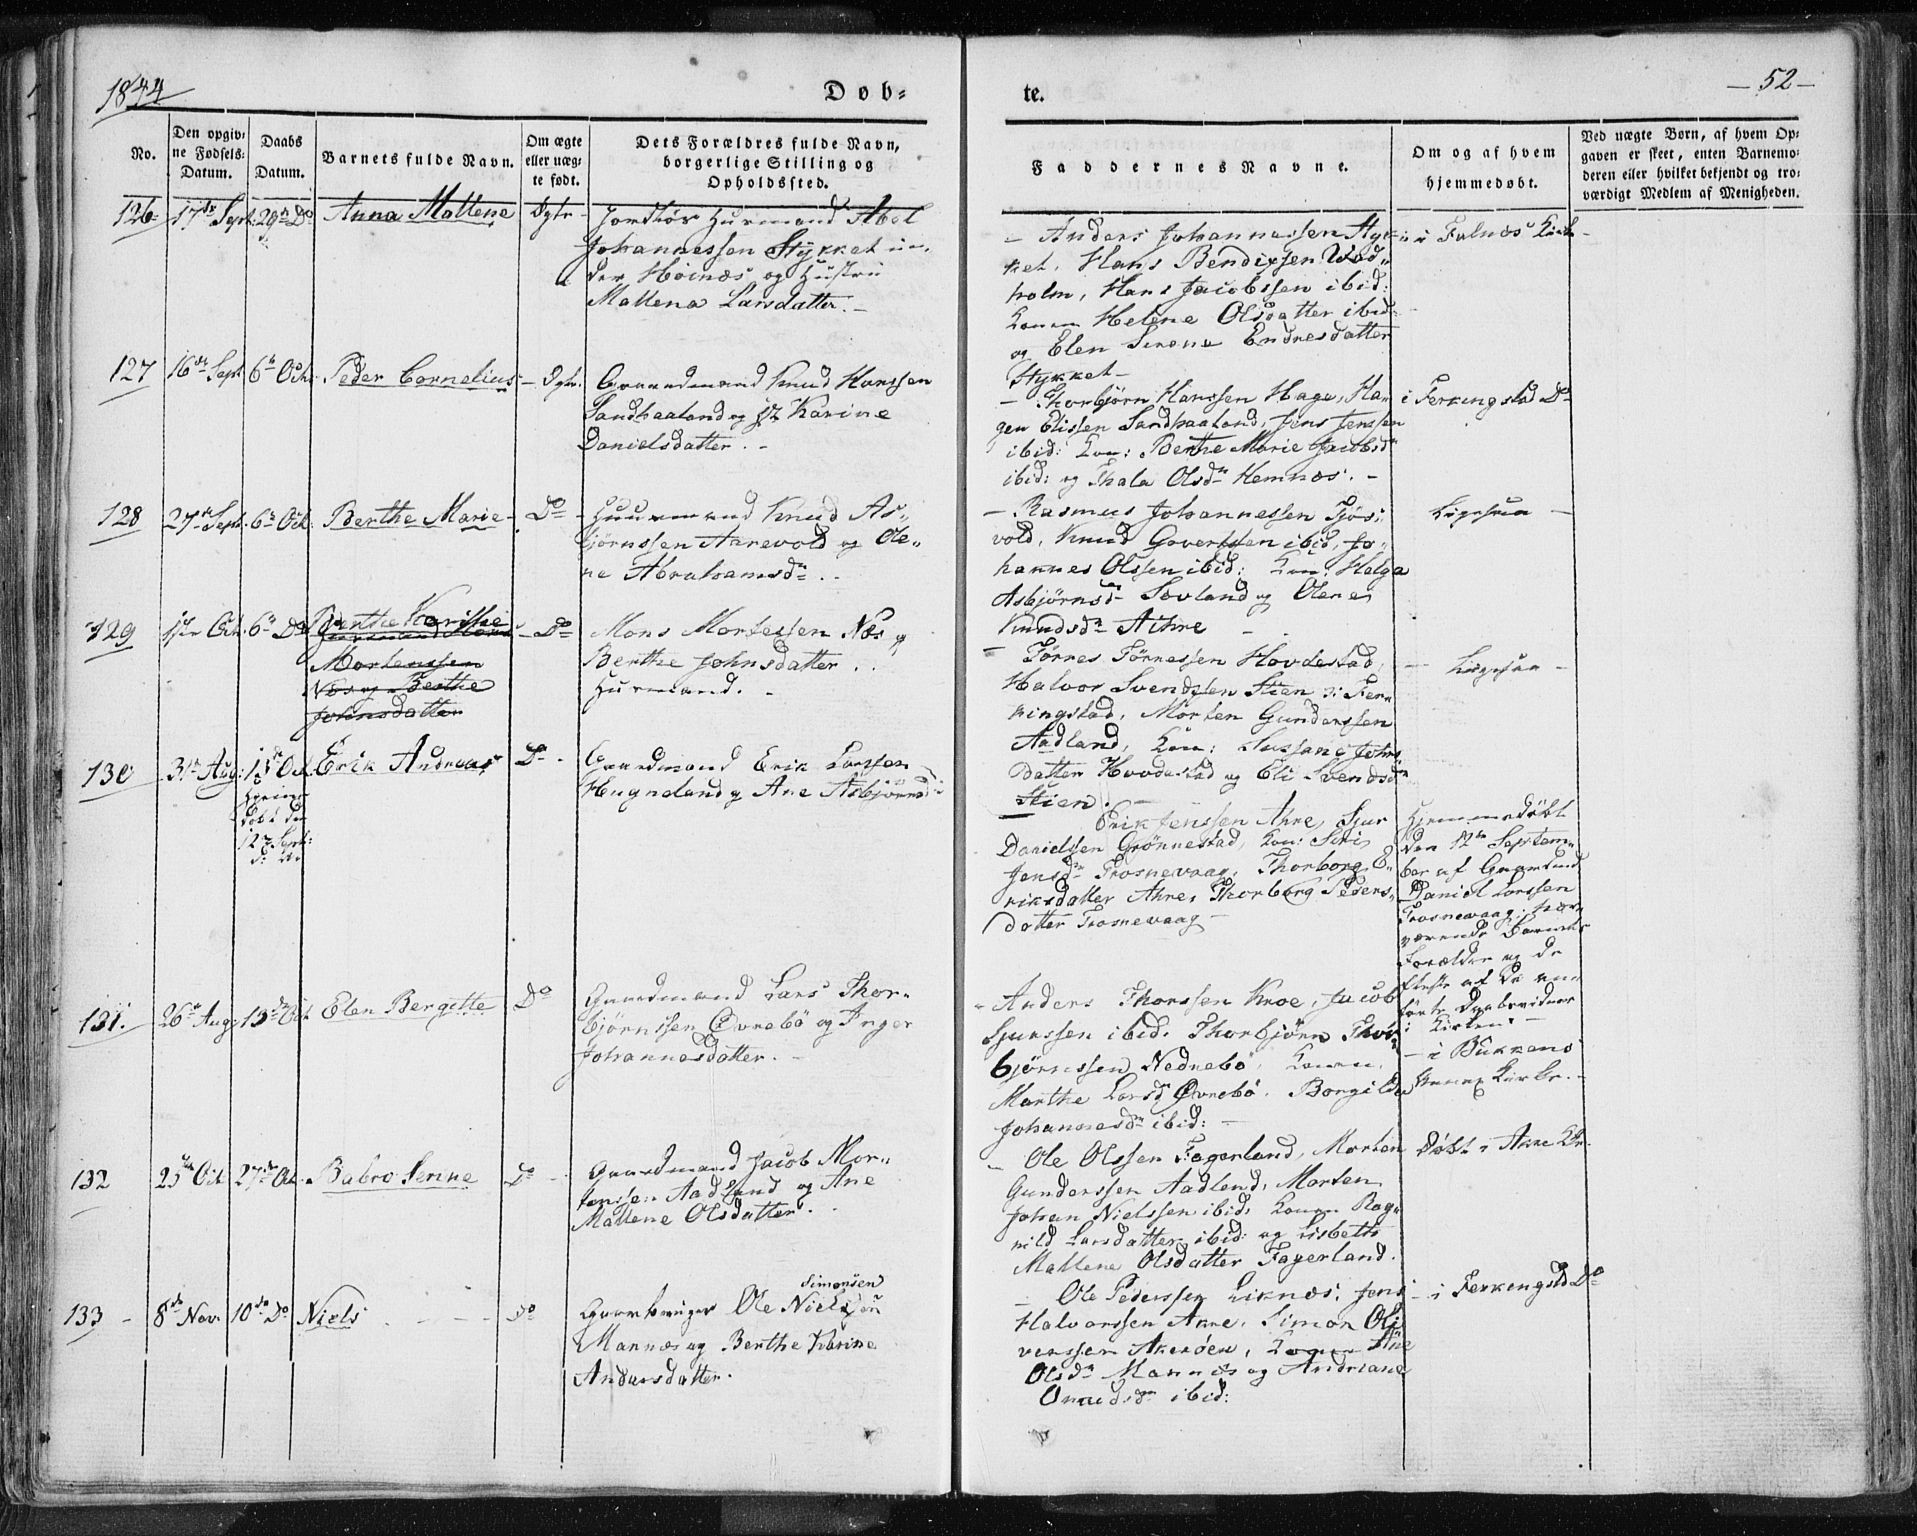 1844
Døb-
te.
- 52 -
No.
Den opgiv-
ne Fødsels-
Datum.
Daabs
Datum.
Barnets fulde Navn.
Om ægte
eller uæg-
te født.
Dets Forældres fulde Navn,
borgerlige Stilling og
Opholdssted.
Faddernes Navne.
Om og af hvem
hjemmedøbt.
Ved uægte Børn, af hvem Op-
gaven er skeet, enten Barnemo-
deren eller hvilket bekjendt og tro-
værdigt Medlem af Menigheden.
126
17de Sept.
29de Do
Anna Mallene
Ægte
Huusmand Abel
Johannessen Stykket un-
der Høinæs og Hustru
Mallena Larsdatter. -
- Anders Johannessen Styk-
ket, Hans Bendixsen Vod-
holm, Hans Jacobssen ibid:
Konen Helene Olsdatter ibid:
og Elen Serene Endresdatter
Stykket -
i Falnæs Kirke -
127
16de Sept
6te Octr
Peder Cornelius
- Ægte.
Gaardmand Knud Hanssen
Sandhaaland og H Karine
Danielsdatter. -
- Thorbjørn Hanssen Hage, Ha-
gen Elissen Sandhaaland, Jens Jenssen
ibid: Kon: Berthe Marie Jacobsdr
ibid: og Thala Olsdr Hemnæs. -
i Ferkengstad Do
128
27de Sept.
6te Oct.
Berthe Marie
- Do -
Huusmand Knud As-
bjørnssen Aarevold og Ole-
ne Abrahamsdr. .
- Rasmus Johannessen Tjøs-
vold, Knud Govertssen ibid, Jo-
hannes Olssen ibid: Kon: Helga
Asbjørnsdr Sevland og Olene
Knudsdr Athre -
Ligesaa -
129
1ste Oct.
6te Do
Berthe Karithe
Mortenssen
Næs og Berthe
Johnsdatter
- Do
Mons Mortessen Næs og
Berthe Johnsdatter . .
Huusmand. -
- Tørres Tørressen Hovdestad,
Halvor Svendssen Stien i Fer-
kingstad, Morten Gunderssen
Aadland, Kon: Sussane Johns-
datter Hovdestad og Eli Svendsdr
Stien. -
- Ligesaa -
130
31te Aug:
13de Oct.
Hjemme-
døbt den
12te Sept:
Erik Andreas
Do -
Gaardmand Erik Larssen
Hugneland og Ane Asbjørnsd
Erik Jenssen Ahre, Sjur
Danielsen Grønnestad, Kon: Siri
Jensdr Trosnevaag, Thorborg E-
riksdatter Ahre, Thorborg Peders-
datter Trosnevaag -
Hjemmedøbt
den 12te Septem-
ber af Gaardmd
Daniel Larssen
Trosnevaag, nær-
værende Barnets
Forældre og de
fleste af de an-
førte Daabsvidner
i Kirken. -
131.
26de Aug:
13de Oct
Elen Bergitte
Do
Gaardmand Lars Thor-
bjørnssen Øvrebø og Inger
Johannesdatter. -
- Anders Thorssen Kroe, Jacob
Sjurssen ibid. Thorbjørn Thor-
bjørnssen Nednebø, Konen
Marthe Larsd Øvrebø. Borgilde
Johannesdr ibid: -
- i Bukkens
Annex Kirke. -
132
25de Oct
27de Oct.
Babro Serine
Do -
Gaardmand Jacob Mor-
tenssen Aadland og Ane
Mallene Olsdatter. .
- Ole Olssen Fagerland, Morten
Gunderssen Aadland, Morten
Johan Nielssen ibid. Konen Rag-
nild Larsdatter ibid: og Lisbeth
Mallene Olsdatter Fagerland.
Døbt i Akre Kir.
133 -
8de Nov.
10de Do
Niels
Do
Simonsen
Gaardbruger Ole Nielssen
Mannes og Berthe Karine
Andersdatter.
- Ole Pederssen Liknæs, Jens
Halvorssen Akre, Simon Oli-
verssen Akerøen, Konen Ane
Olsdr Mannes og Andriane
Omundsdr ibid:
- i Ferkengstd Do